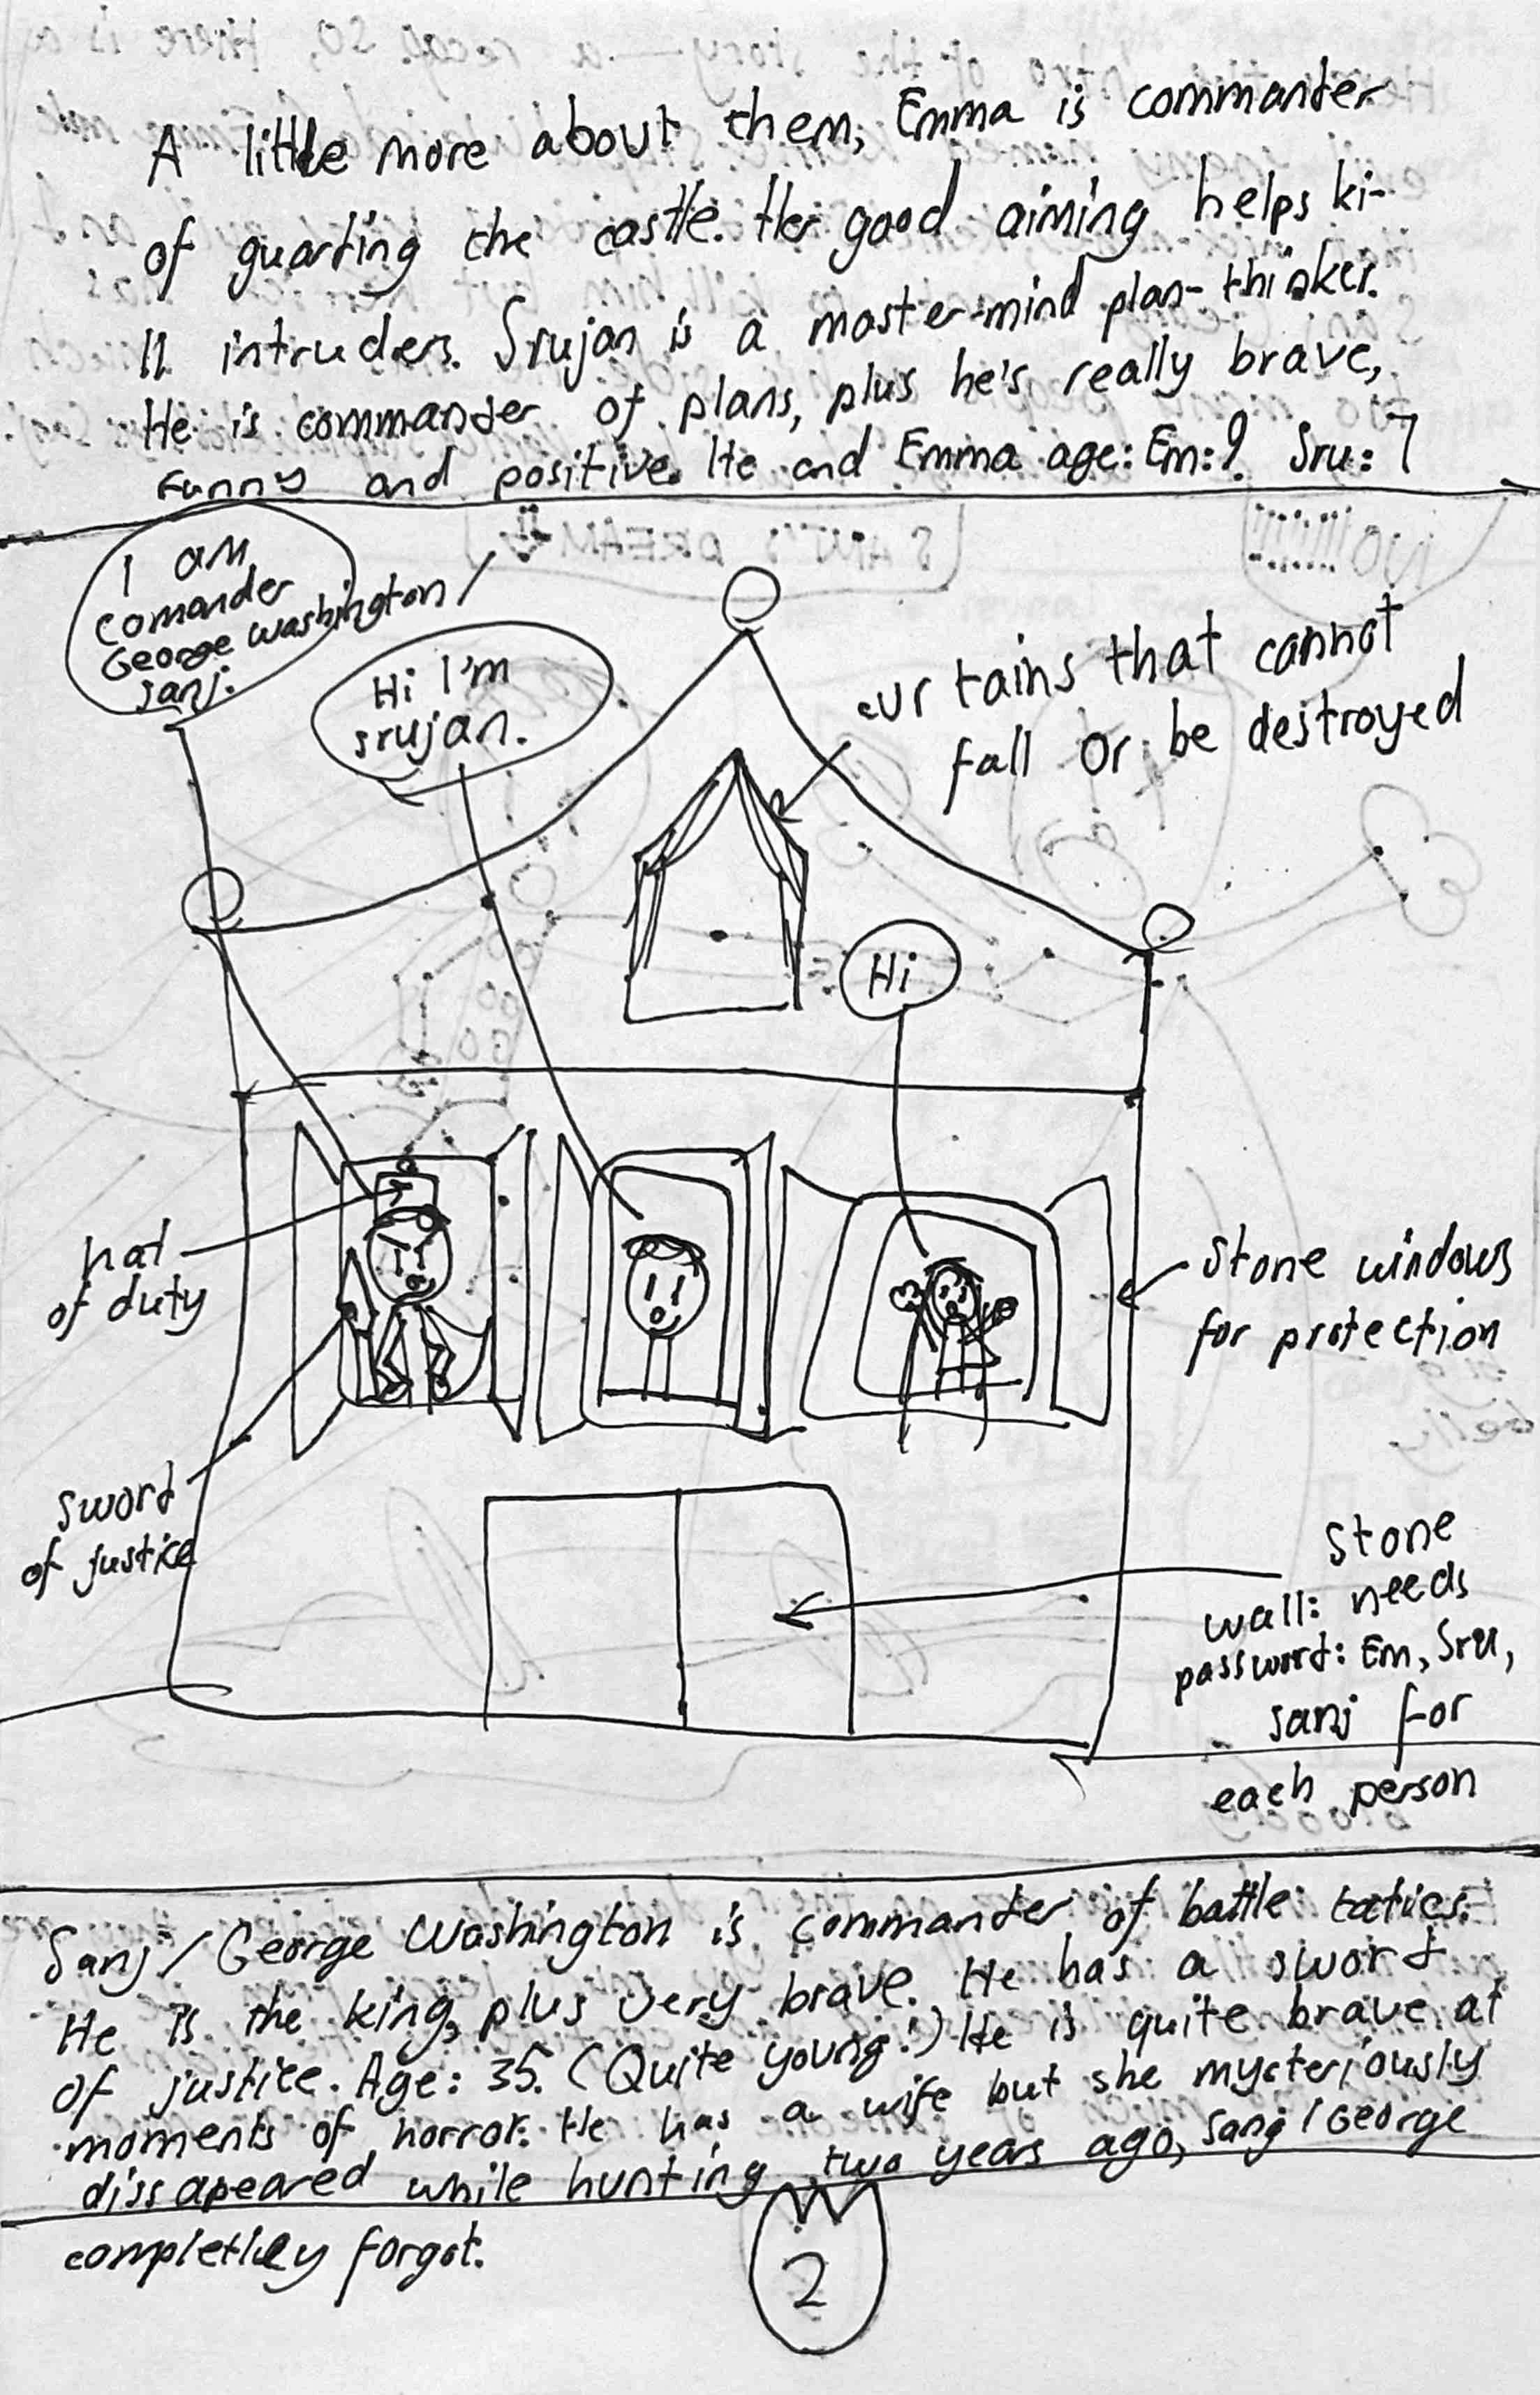 A little more about them, Emma is commander
of guarding the castle. Her good aiming helps ki-
ll intruders. Srujan is a master-mind plan-thinker.
He is commander of plans, plus he's really brave,
Funny and positive. He and Emma age: Em: 9 Sru: 7
I am
comander
George Washington /
Sanj.
Hi I'm
srujan.
curtains that cannot
fall or be destroyed
Hi
hat
of duty
stone windows
for protection
sword
of justice
Stone
wall: needs
password: Em, Sru,
sanj for
each person
Sanj / George Washington is commander of battle tactics.
He is the king, plus very brave. He has a sword
of justice. Age: 35. (Quite young!) He is quite brave at
moments of horror. He has a wife but she mysteriously
dissapeared while hunting two years ago, Sanj / George
completley forgot.
2